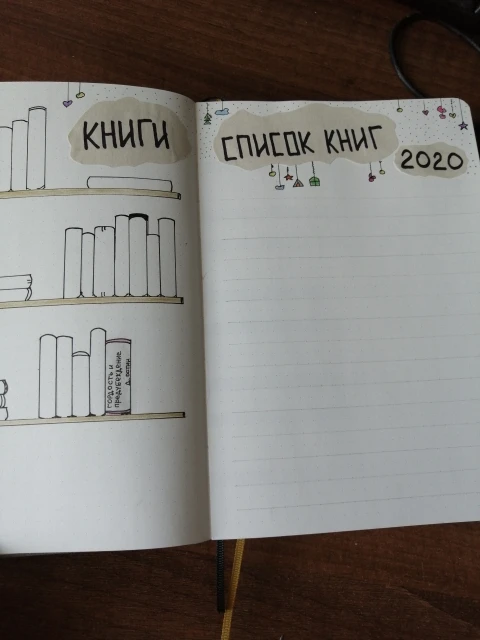 КНИГИ
ГОРДОСТЬ И
ПРЕДУБЕЖДЕНИЕ
Д. ОСТИН
СПИСОК КНИГ
2020